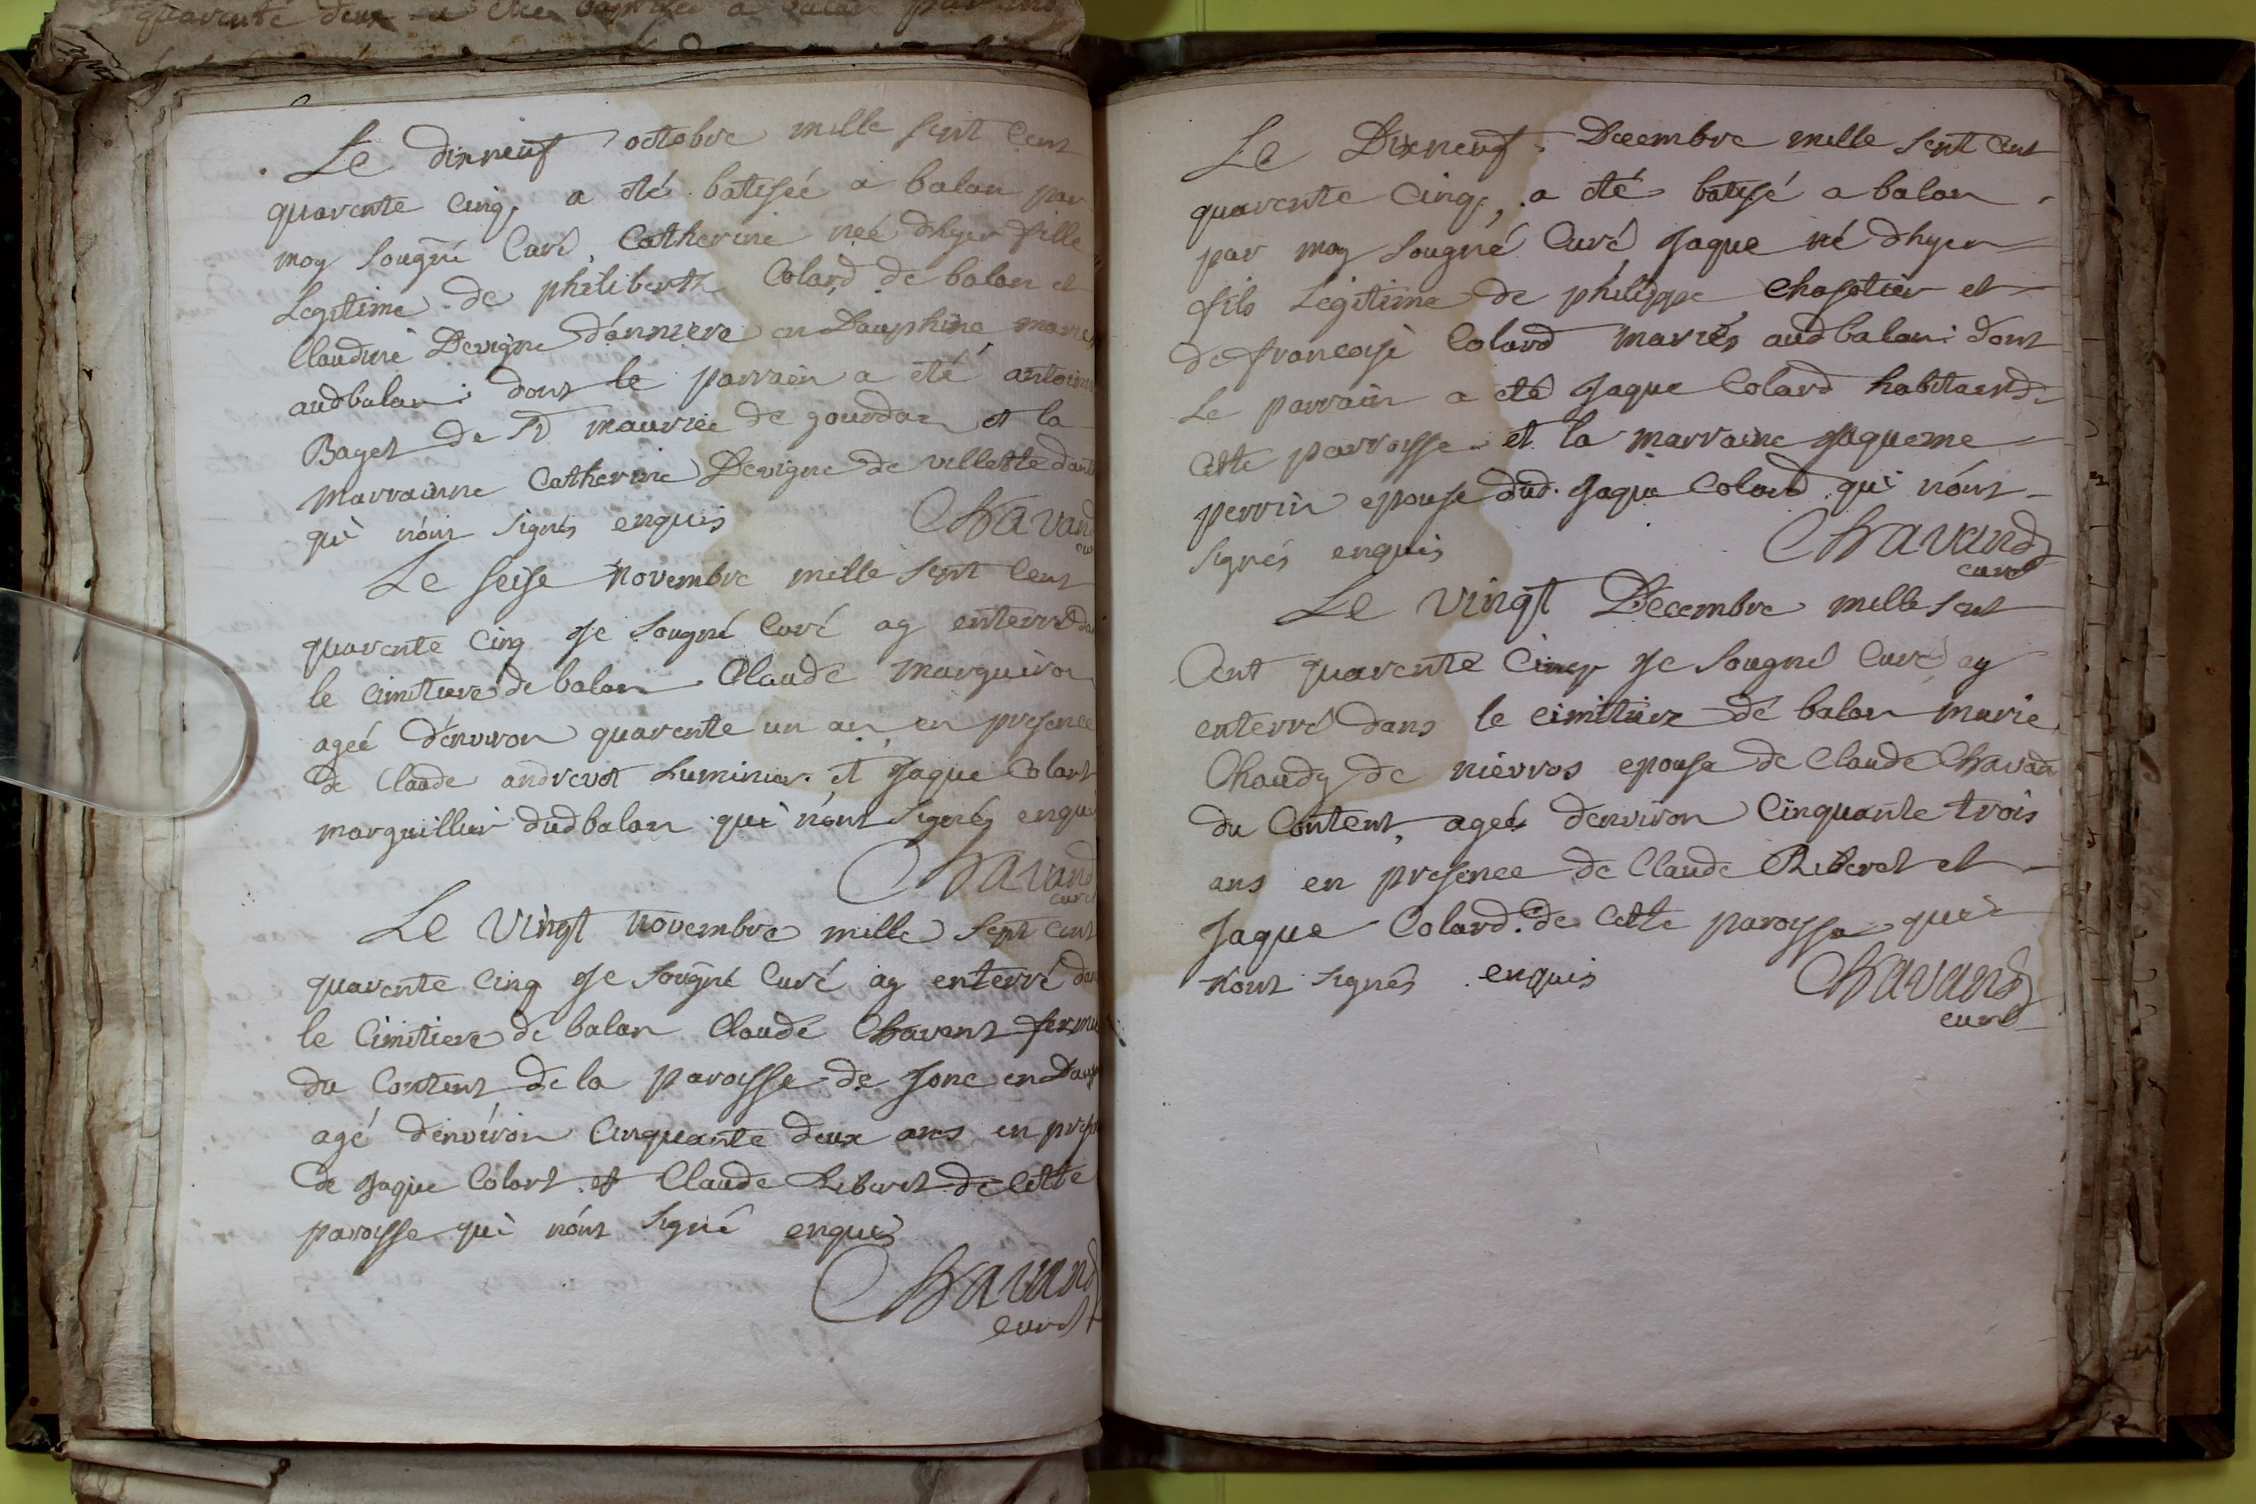 quarente deux a été baptisée a balan par
Le dixneuf octobre mille sept cent
quarente cinq, a été batisée a balan par
moy sougné Curé, Catherine née dhyer fille
Legitime de philiberth Colard de balan et
Claudine Devigne d'anniere en Dauphine mariés
audbalan: dont le parrain a été antoine
Baget de St maurice de gourdan et la
marrainne Catherine Devigne de villette d'ant
qui n'ont signés enquis Chavand
cu
Le seise Novembre mille sept Cent
quarente cinq Je sougné Curé ay enterré dan
le cimitiere de balan Claude marguiron
ageé d'environ quarente un an en presence
de Claude andrevot Luminier et Jaque Colart
marguillier dudbalan qui n'ont signés enqui
Chavand
curé
Le Vingt Novembre mille sept cent
quarente cinq Je sougné Curé ay enterré dan
le Cimitiere de balan Claude Chavent fermie
du Content de la paroisse de Jone en Daup
agé d'environ Cinquante deux ans en prese
de Jaque Colart et Claude Riberet de Cette
paroisse qui n'ont signé enquis
Chavand
curé
Le Dixneuf Decembre mille sept Cent
quarente Cinq, a été batisé a balan
par moy sougné Curé Jaque né dhyer
fils Legitime de philippe Chapotier et
de francoise Colard mariés audbalan: dont
Le parrain a été Jaque Colard habitant d
Cette parroisse et la marraine Jaqueme
perrin epouse dud. Jaque Colard qui n'ont
signés enquis Chavand
curé
Le Vingt Decembre mille sept
Cent quarente Cinq Je sougné Curé ay
enterré dans le cimitiere dé balan marie
Chaudy de nievros epouse de Claude Chavan
du Content, ageé d'environ Cinquante trois
ans en presence de Claude Riberet et
Jaque Colard de Cette paroisse qui
n'ont signés enquis Chavand
curé